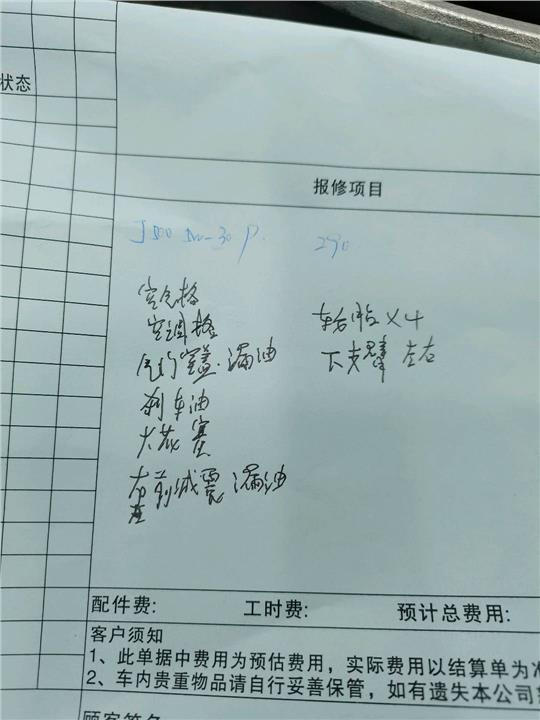 状态
报修项目
J500 5W-30 P. 290
空气格
空调格 轮胎 X4
气门室盖.漏油 下支臂 左右
刹车油
火花塞
前减震漏油
配件费: 工时费: 预计总费用:
客户须知
1、此单据中费用为预估费用，实际费用以结算单为准
2、车内贵重物品请自行妥善保管，如有遗失本公司
顾客签名